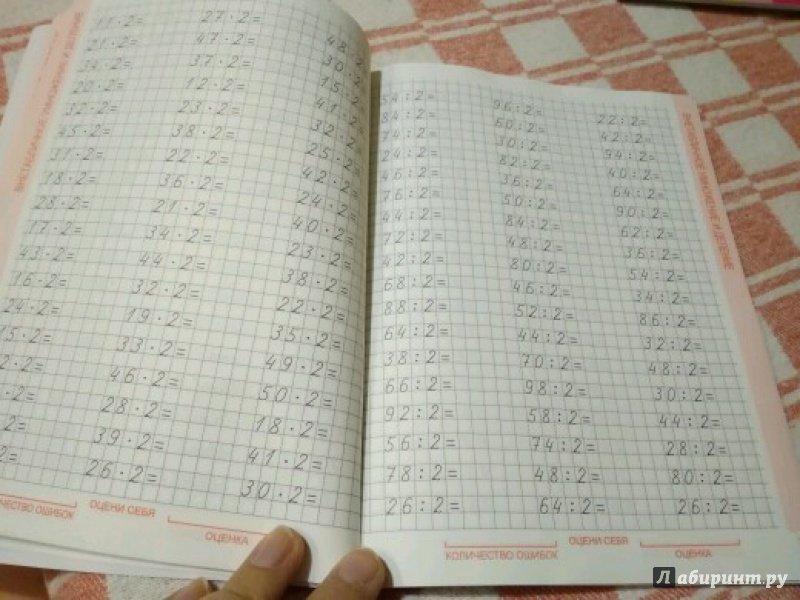 ВНЕТАБЛИЧНОЕ УМНОЖЕНИЕ И ДЕЛЕНИЕ
11·2= 27·2= 48·2
21·2= 47·2= 30·2
34·2= 37·2= 15·2
20·2= 12·2= 41·2
32·2= 23·2= 32·2
45·2= 38·2= 25·2=
31·2= 22·2= 42·2=
18·2= 36·2= 24·2=
28·2= 21·2= 40·2=
17·2= 34·2= 23·2=
43·2= 44·2= 38·2=
16·2= 32·2= 22·2=
24·2= 19·2= 35·2=
15·2= 33·2= 49·2=
2·2= 46·2= 50·2=
·2= 28·2= 18·2=
·2= 39·2= 41·2=
2= 26·2= 30·2=
ОЦЕНИ СЕБЯ
ЧЕСТВО ОШИБОК ОЦЕНКА
54:2= 96:2= 22:2=
84:2= 60:2= 42:2=
74:2= 30:2= 94:2=
24:2= 82:2= 40:2=
46:2= 36:2= 64:2=
76:2= 50:2= 90:2=
44:2= 84:2= 62:2=
72:2= 48:2= 36:2=
42:2= 80:2= 54:2=
68:2= 46:2= 34:2=
88:2= 52:2= 86:2=
64:2= 44:2= 32:2=
38:2= 70:2= 48:2=
66:2= 98:2= 30:2=
92:2= 58:2= 44:2=
56:2= 74:2= 28:2=
78:2= 48:2= 80:2=
26:2= 64:2= 26:2=
ВНЕТАБЛИЧНОЕ УМНОЖЕНИЕ И ДЕЛЕНИЕ
ОЦЕНИ СЕБЯ
КОЛИЧЕСТВО ОШИБОК ОЦЕНКА
Лабиринт.ру